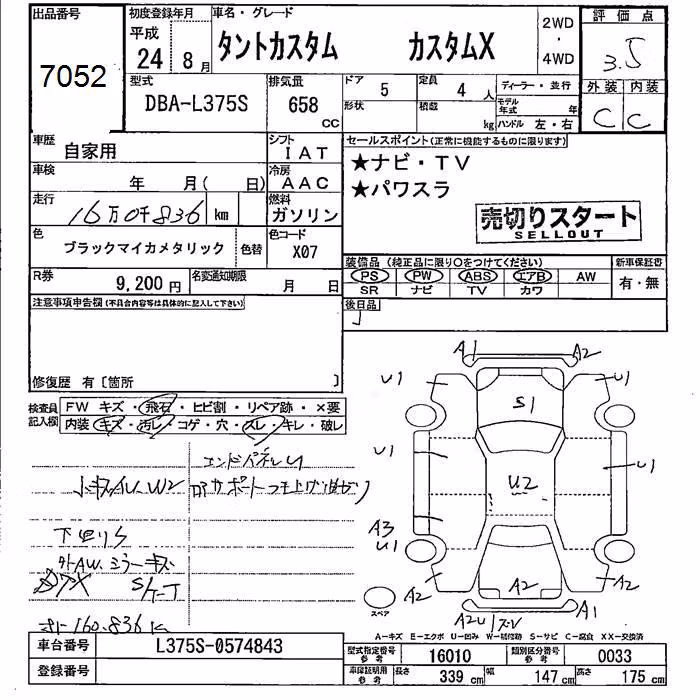 出品番号
7052
初度登録年月
平成
24 8月
車名・グレード
タントカスタム カスタムX
2WD
・
4WD
評価点
3.5
型式
DBA-L375S
排気量
658
CC
ドア
5
定員
4人
形状
積載
kg
ディーラー・並行
モデル年式 年
ハンドル 左・右
外装 内装
C C
車歴
自家用
シフト
IAT
車検
年 月( 日)
冷房
AAC
走行
16万0千836 km
燃料
ガソリン
色
ブラックマイカメタリック
色替
色コード
X07
R券
9,200円
名変通知期限
月 日
セールスポイント(正常に機能するものに限ります)
★ナビ・TV
★パワスラ
売切りスタート
SELLOUT
装備品(純正品に限り○をつけてください)
PS PW ABS エアB AW
SR ナビ TV カワ
新車保証書
有・無
後日品
注意事項申告欄(不具合内容等は具体的に記入して下さい)
修復歴 有〔箇所 〕
検査員記入欄
FW キズ・飛石・ヒビ割・リペア跡・×要
内装・キズ・汚レ・コゲ・穴・スレ・キレ・破レ
エンドパネルU
小キズAU、W2
下回りS
外AW、ミラーキズ
A1 A2
U1 U1
S1
U1 U1
U2
A3
U1
A2 A2 A2
A2U1 A1
スペア
A―キズ E―エクボ U―凹み W―補修跡 S―サビ C―腐食 XX―交換済
車台番号
L375S-0574843
登録番号
型式指定番号 参考
16010
類別区分番号 参考
0033
車庫証明用 参考
長さ 339 cm 幅 147 cm 高さ 175 cm